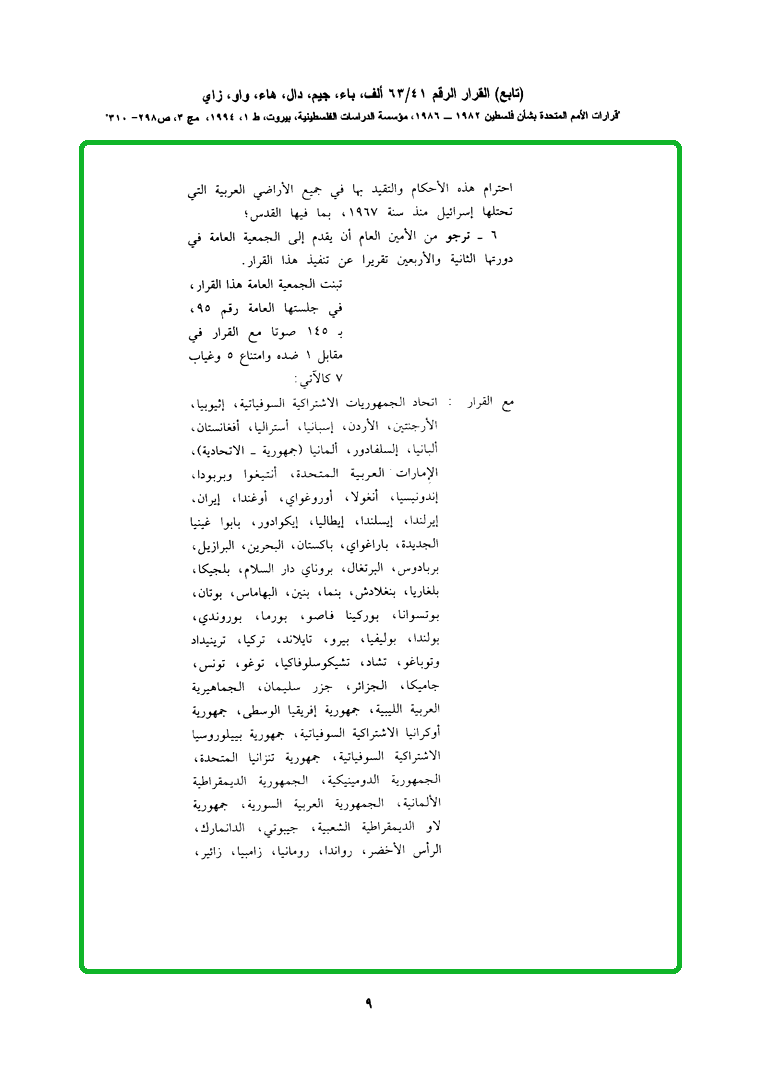 (تابع) القرار الرقم ٦٣/٤١ ألف، باء، جيم، دال، هاء، واو، زاي
"قرارات الأمم المتحدة بشأن فلسطين ١٩٨٢ ــ ١٩٨٦، مؤسسة الدراسات الفلسطينية، بيروت، ط ١، ١٩٩٤، مج ٣، ص٢٩٨- ٣١٠"
احترام هذه الأحكام والتقيد بها في جميع الأراضي العربية التي
تحتلها إسرائيل منذ سنة ١٩٦٧، بما فيها القدس؛
٦ ـ ترجو من الأمين العام أن يقدم إلى الجمعية العامة في
دورتها الثانية والأربعين تقريرا عن تنفيذ هذا القرار.
تبنت الجمعية العامة هذا القرار،
في جلستها العامة رقم ٩٥،
بـ ١٤٥ صوتا مع القرار في
مقابل ١ ضده وامتناع ٥ وغياب
٧ كالآتي:
مع القرار : اتحاد الجمهوريات الاشتراكية السوفياتية، إثيوبيا،
الأرجنتين، الأردن، إسبانيا، أستراليا، أفغانستان،
ألبانيا، إلسلفادور، ألمانيا (جمهورية ـ الاتحادية)،
الإمارات العربية المتحدة، أنتيغوا وبربودا،
إندونيسيا، أنغولا، أوروغواي، أوغندا، إيران،
إيرلندا، إيسلندا، إيطاليا، إيكوادور، بابوا غينيا
الجديدة، باراغواي، باكستان، البحرين، البرازيل،
بربادوس، البرتغال، بروناي دار السلام، بلجيكا،
بلغاريا، بنغلادش، بنما، بنين، البهاماس، بوتان،
بوتسوانا، بوركينا فاصو، بورما، بوروندي،
بولندا، بوليفيا، بيرو، تايلاند، تركيا، ترينيداد
وتوباغو، تشاد، تشيكوسلوفاكيا، توغو، تونس،
جاميكا، الجزائر، جزر سليمان، الجماهيرية
العربية الليبية، جمهورية إفريقيا الوسطى، جمهورية
أوكرانيا الاشتراكية السوفياتية، جمهورية بييلوروسيا
الاشتراكية السوفياتية، جمهورية تنزانيا المتحدة،
الجمهورية الدومينيكية، الجمهورية الديمقراطية
الألمانية، الجمهورية العربية السورية، جمهورية
لاو الديمقراطية الشعبية، جيبوتي، الدانمارك،
الرأس الأخضر، رواندا، رومانيا، زامبيا، زائير،
٩